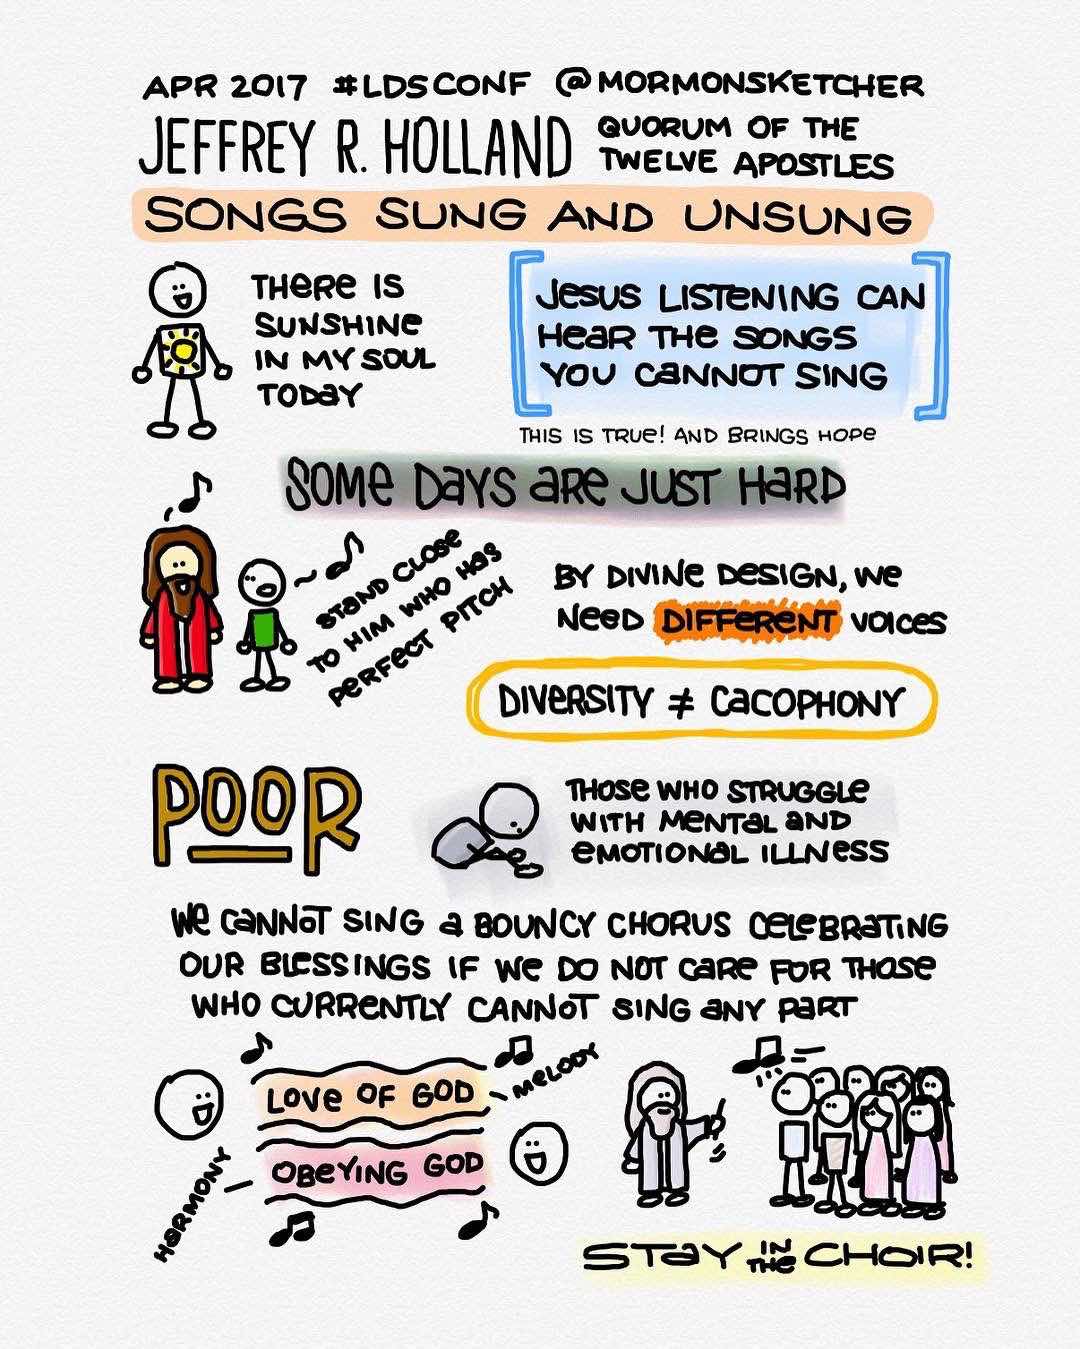 APR 2017 #LDSCONF @MORMONSKETCHER
JEFFREY R. HOLLAND
QUORUM OF THE
TWELVE APOSTLES
SONGS SUNG AND UNSUNG
THERE IS
SUNSHINE
IN MY SOUL
TODAY
JESUS LISTENING CAN
HEAR THE SONGS
YOU CANNOT SING
THIS IS TRUE! AND BRINGS HOPE
SOME DAYS ARE JUST HARD
STAND CLOSE
TO HIM WHO HAS
PERFECT PITCH
BY DIVINE DESIGN, WE
NEED DIFFERENT VOICES
DIVERSITY ≠ CACOPHONY
POOR
THOSE WHO STRUGGLE
WITH MENTAL AND
EMOTIONAL ILLNESS
WE CANNOT SING A BOUNCY CHORUS CELEBRATING
OUR BLESSINGS IF WE DO NOT CARE FOR THOSE
WHO CURRENTLY CANNOT SING ANY PART
LOVE OF GOD
MELODY
OBEYING GOD
HARMONY
STAY IN THE CHOIR!